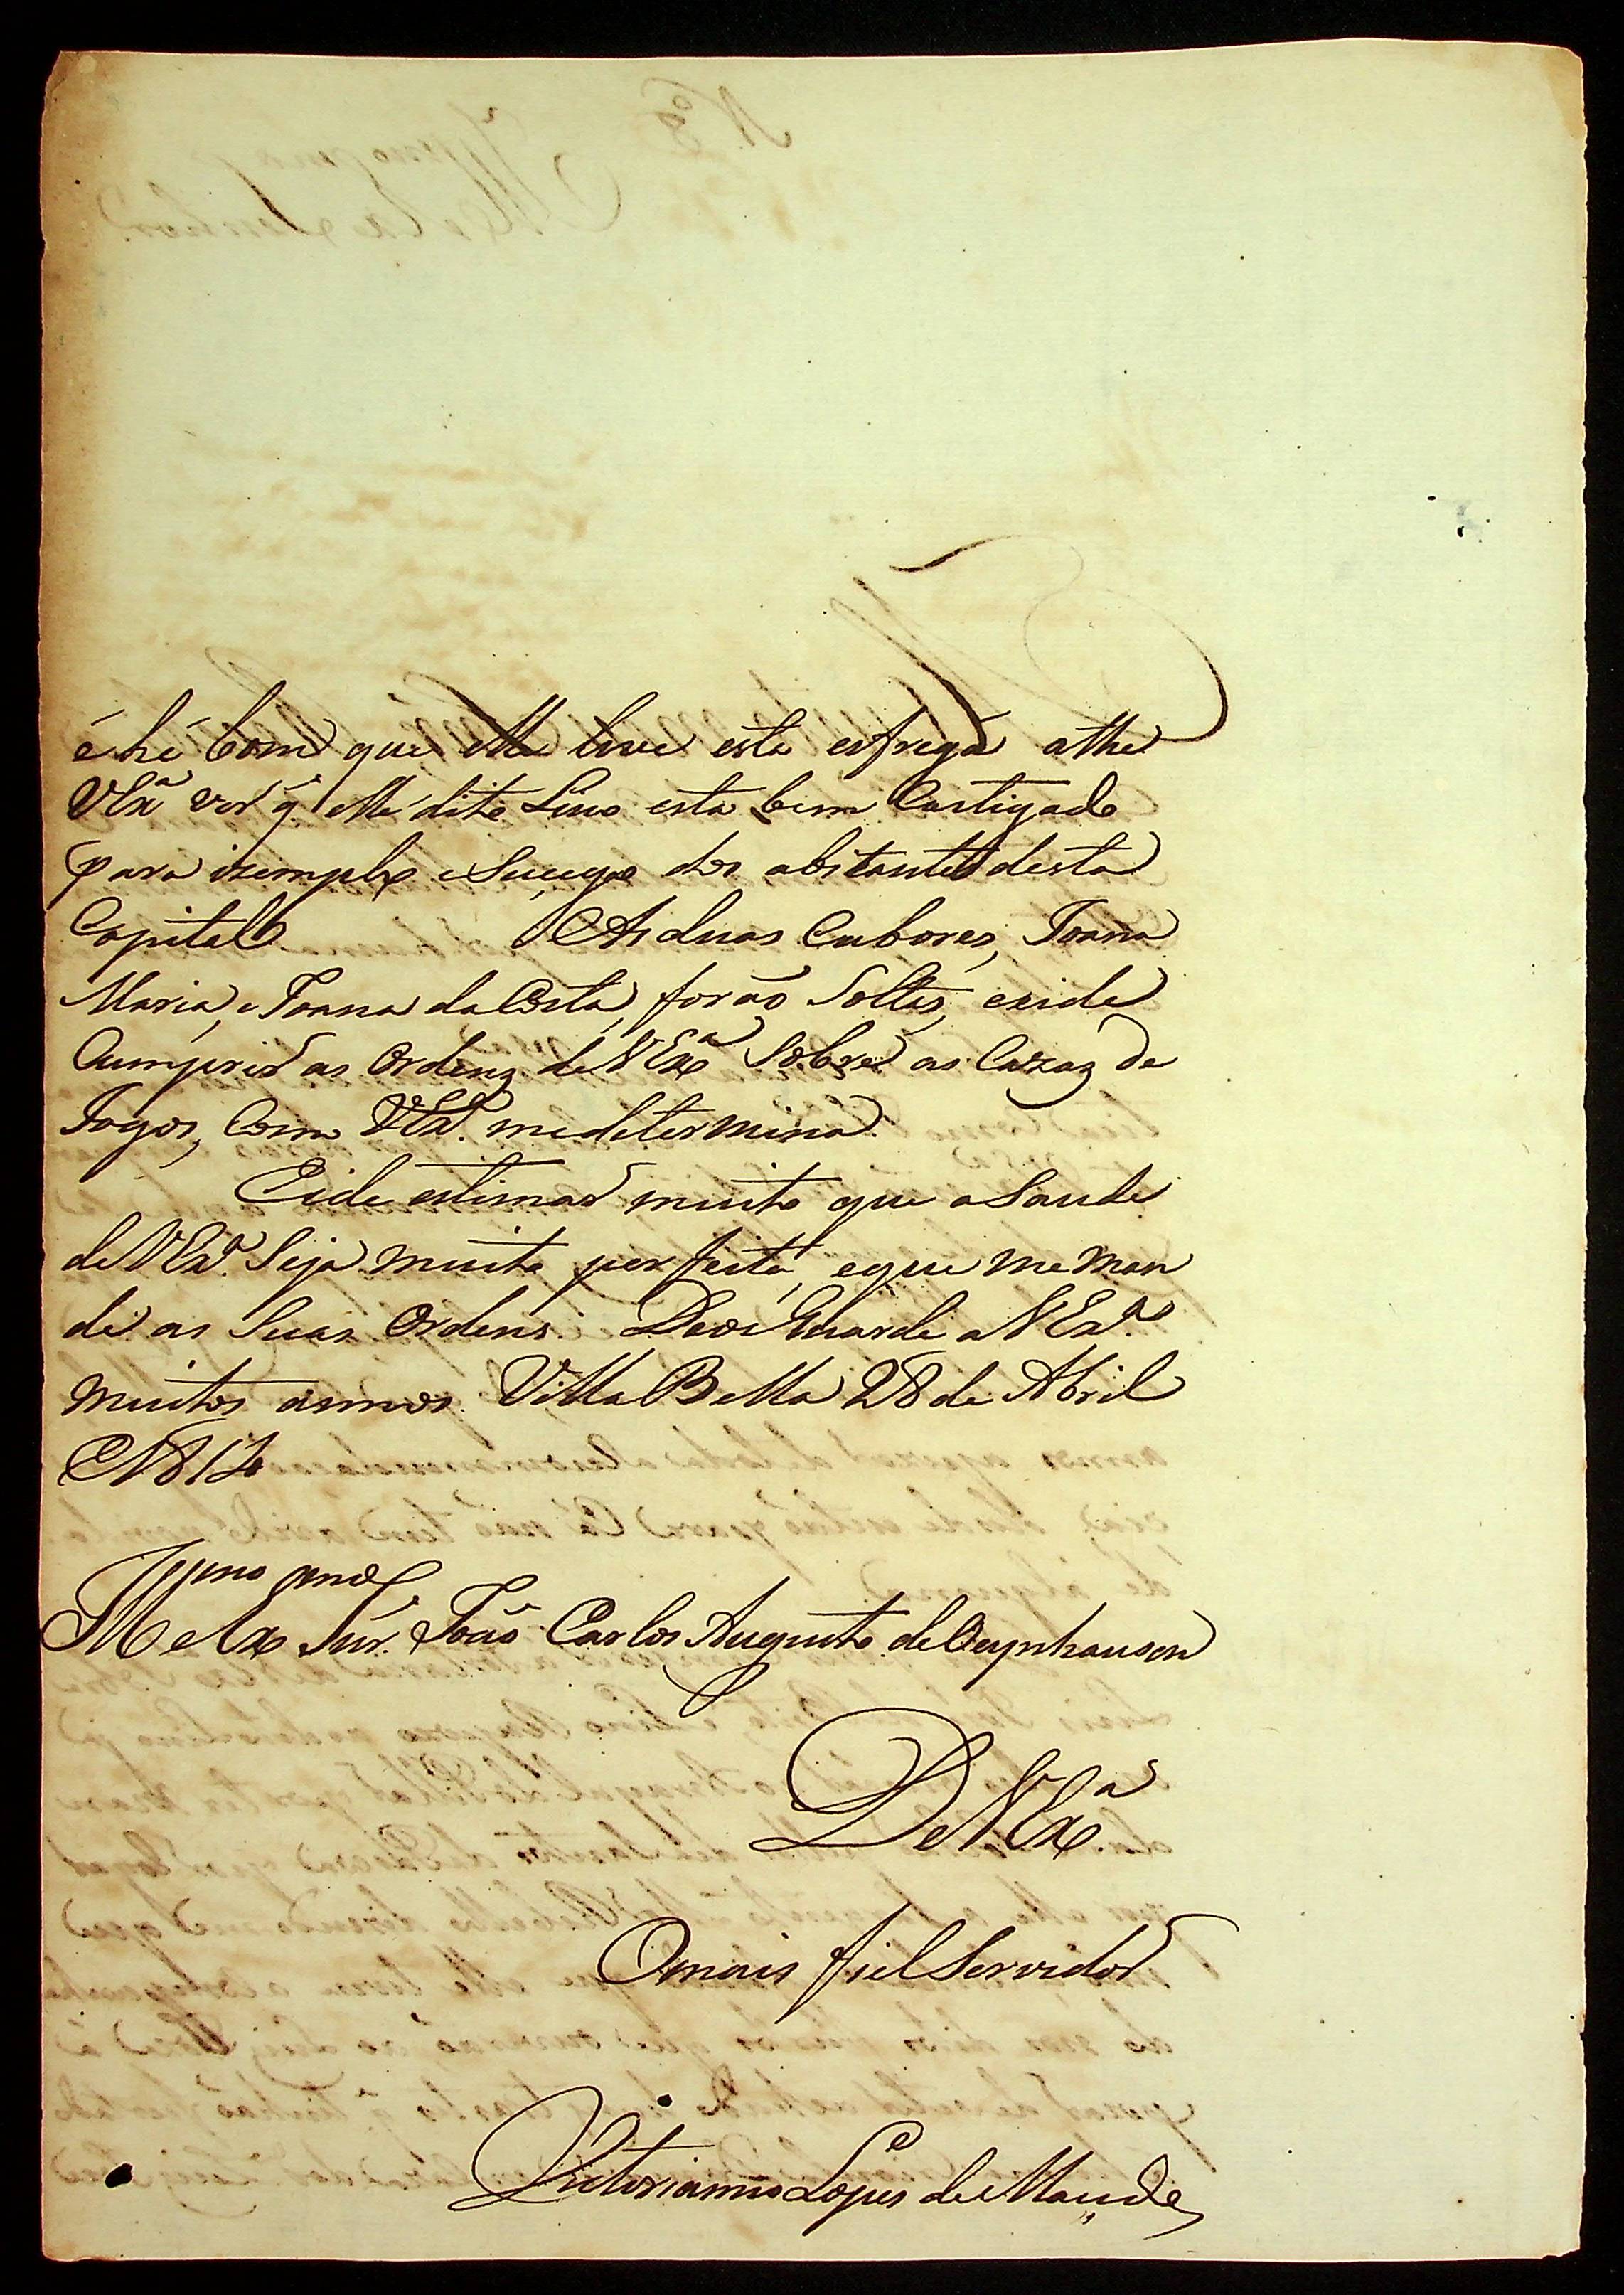 é hé bom que elle leve esta esfrega athe
VExª ver q̃ elle dito Lino esta bem Castigado
para izemplo e Sucego dos abitantes desta
Capital As duas Cubores, Joana
Maria, e Joana da Costa, forão Soltas, eide
Cumprir as Ordenz de VExª Sobre as Cazaz de
Jogos, Como VExª. me determina.
Eide estimar muito que a Saude
de VExª. Seja muito perfeita, e que me man
de as Suas Ordens. Deos Guarde a VExª.
muitos annos. Villa Bella 28 de Abril
1814
Illmo e Exmo Snr. João Carlos Augusto de Oeynhauson
De VExª.
O mais fiel Servidor
Victorianno Lopes de Macedo